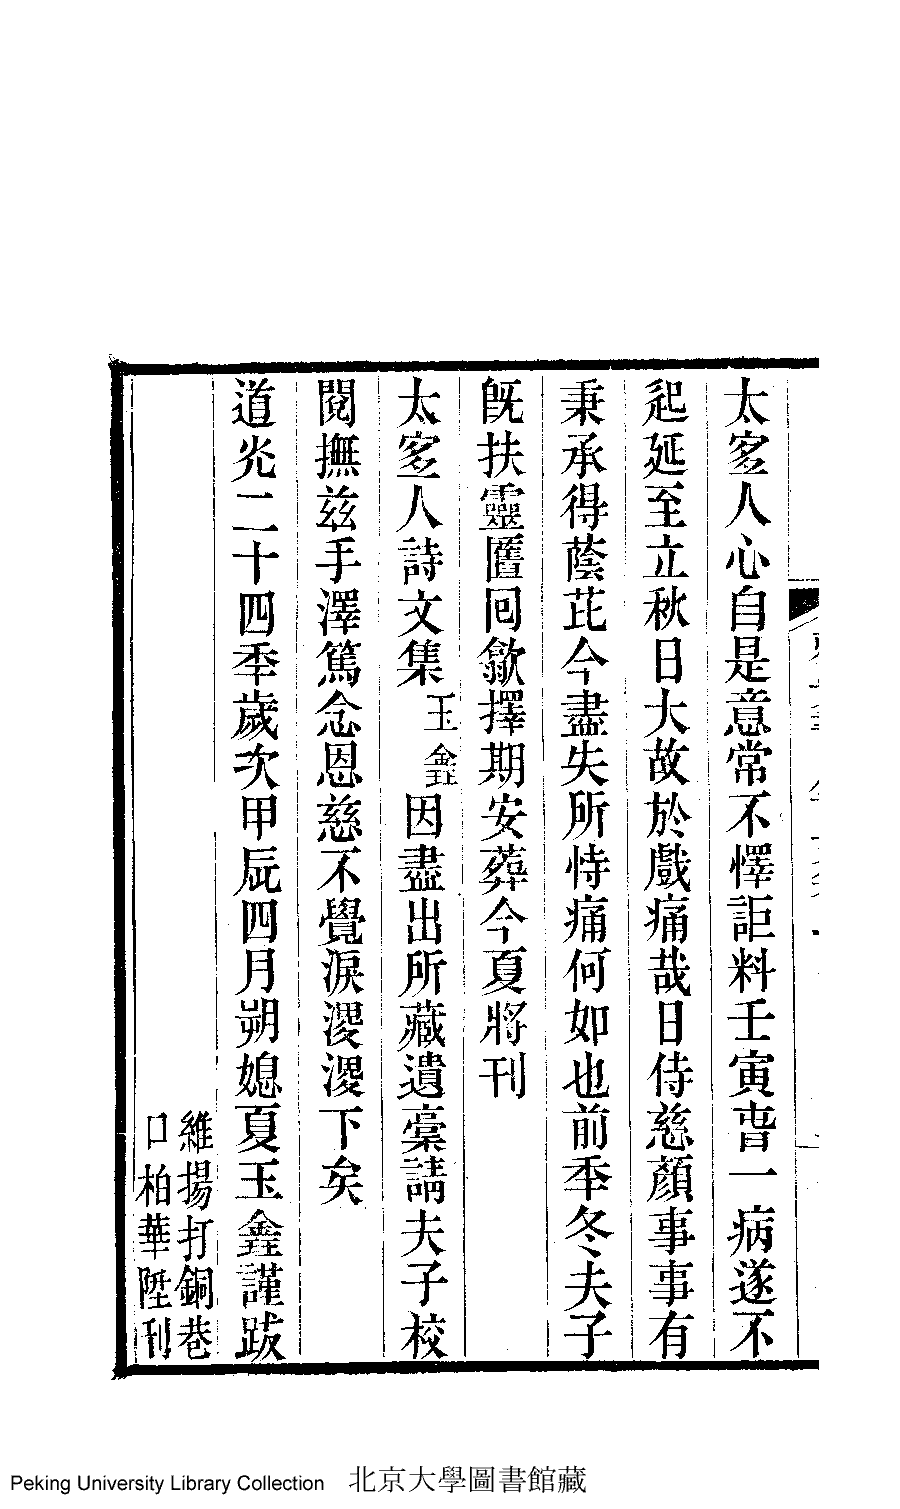 太宜人心自是意常不懌詎料壬寅春一病遂不
起延至立秋日大故於戲痛哉日侍慈顏事事有
秉承得蔭芘今盡失所恃痛何如也前年冬夫子
既扶靈匶回歙擇期安葬今夏將刊
太宜人詩文集玉鑫因盡出所藏遺稾請夫子校
閱撫茲手澤篤念恩慈不覺淚濅濅下矣
道光二十四年歲次甲辰四月朔媳夏玉鑫謹跋
維揚打銅巷
口柏華陞刊
Peking University Library Collection 北京大學圖書館藏